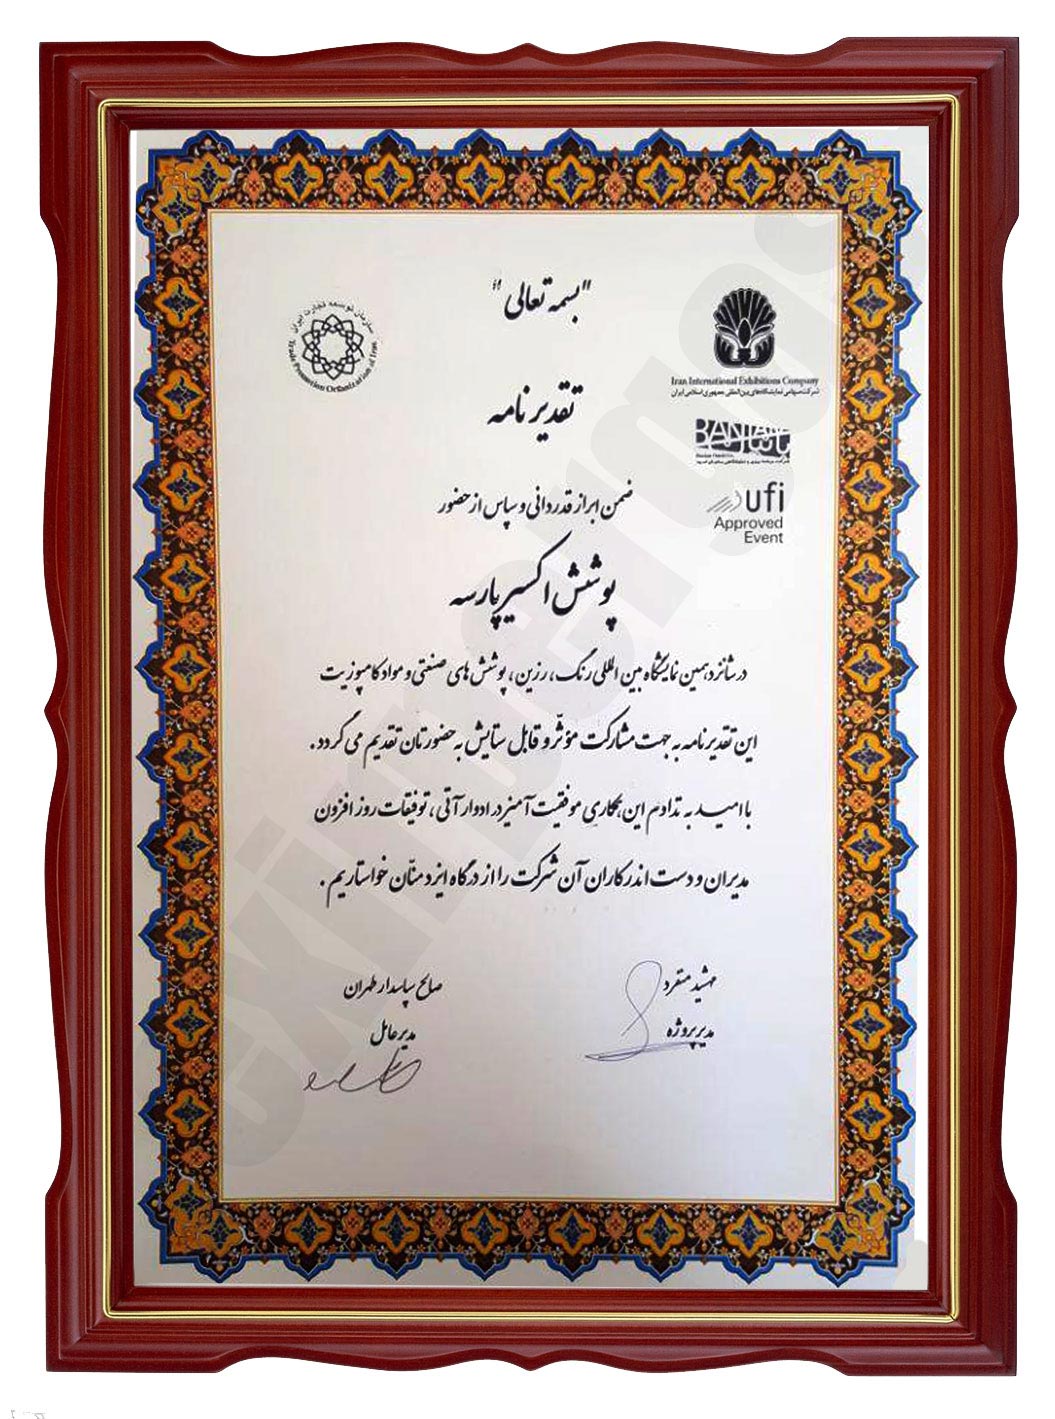 "بسمه تعالی"
سازمان توسعه تجارت ایران
Trade Promotion Organization of Iran
Iran International Exhibitions Company
شرکت سهامی نمایشگاه‌های بین‌المللی جمهوری اسلامی ایران
تقدیرنامه
BANIAN
بانیان
ufi
Approved
Event
ضمن ابراز قدردانی و سپاس از حضور
پوشش اکسیر پارسه
در شانزدهمین نمایشگاه بین المللی رنگ، رزین، پوشش های صنعتی و مواد کامپوزیت
این تقدیرنامه به جهت مشارکت مؤثر و قابل ستایش به حضورتان تقدیم می گردد.
با امید به تداوم این همکاری موفقیت آمیز در ادوار آتی، توفیقات روز افزون
مدیران و دست اندرکاران آن شرکت را از درگاه ایزد منّان خواستاریم.
مهشید متفرد
مدیر پروژه
صالح پاسدار طهران
مدیر عامل